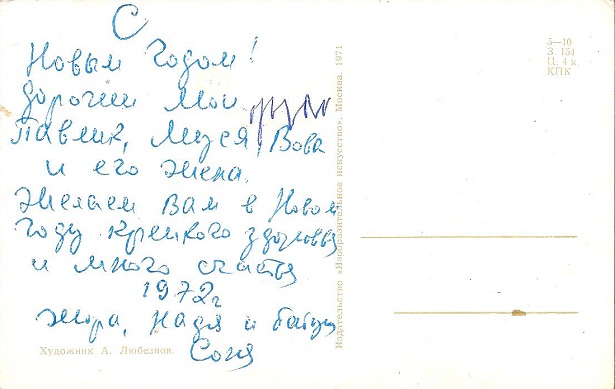 С
Новым Годом!
дорогии Мои
Павлик, Муся Вова
и его жена.
Желаем Вам в Новом
Году крепкого здоровья
и много счастья
1972г
Жора, Надя и бабуш
Соня
Художник А. Любезнов.
Издательство «Изобразительное искусство». Москва. 1971
5—10
З. 154
Ц. 4 к.
КПК